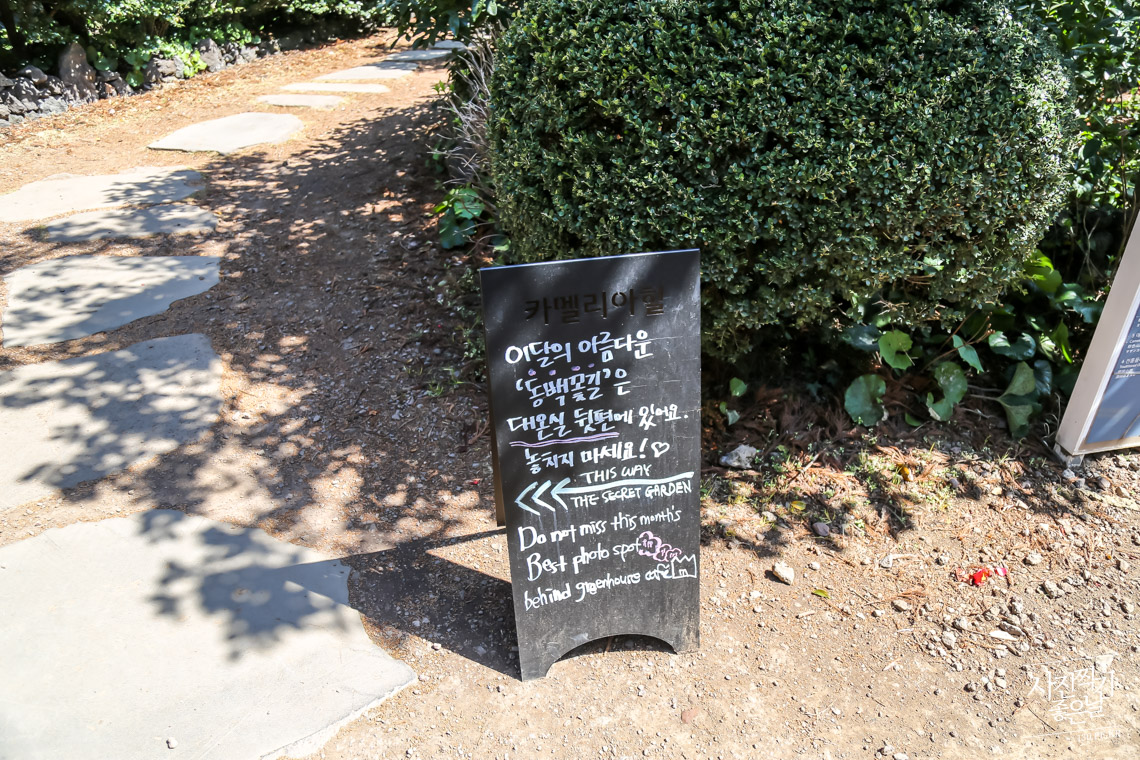 카멜리아힐
이달의 아름다운
'동백꽃길'은
대온실 뒷편에 있어요.
놓치지 마세요!♡
THIS WAY
THE SECRET GARDEN
Do not miss this month's
Best photo spot
behind greenhouse cafe
사진찍기
좋은날